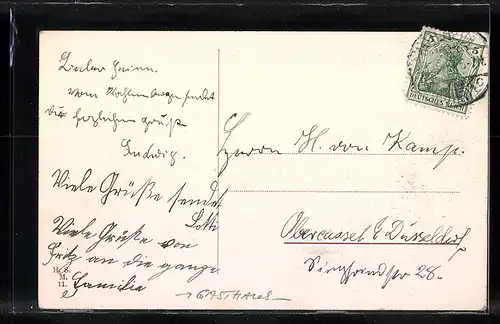 Lieber Heini.
vom sendet
dir herzlichen Gruß
Ludwig.
Viele Grüße sendet
Lotti
Viele Grüße von
Fritz an die ganze
Familie
H. S.
M.
11.
→ GASTHAUS
Herrn H. von Kamp.
Obercassel b/ Düsseldorf
28.
5
DEUTSCHES REICH